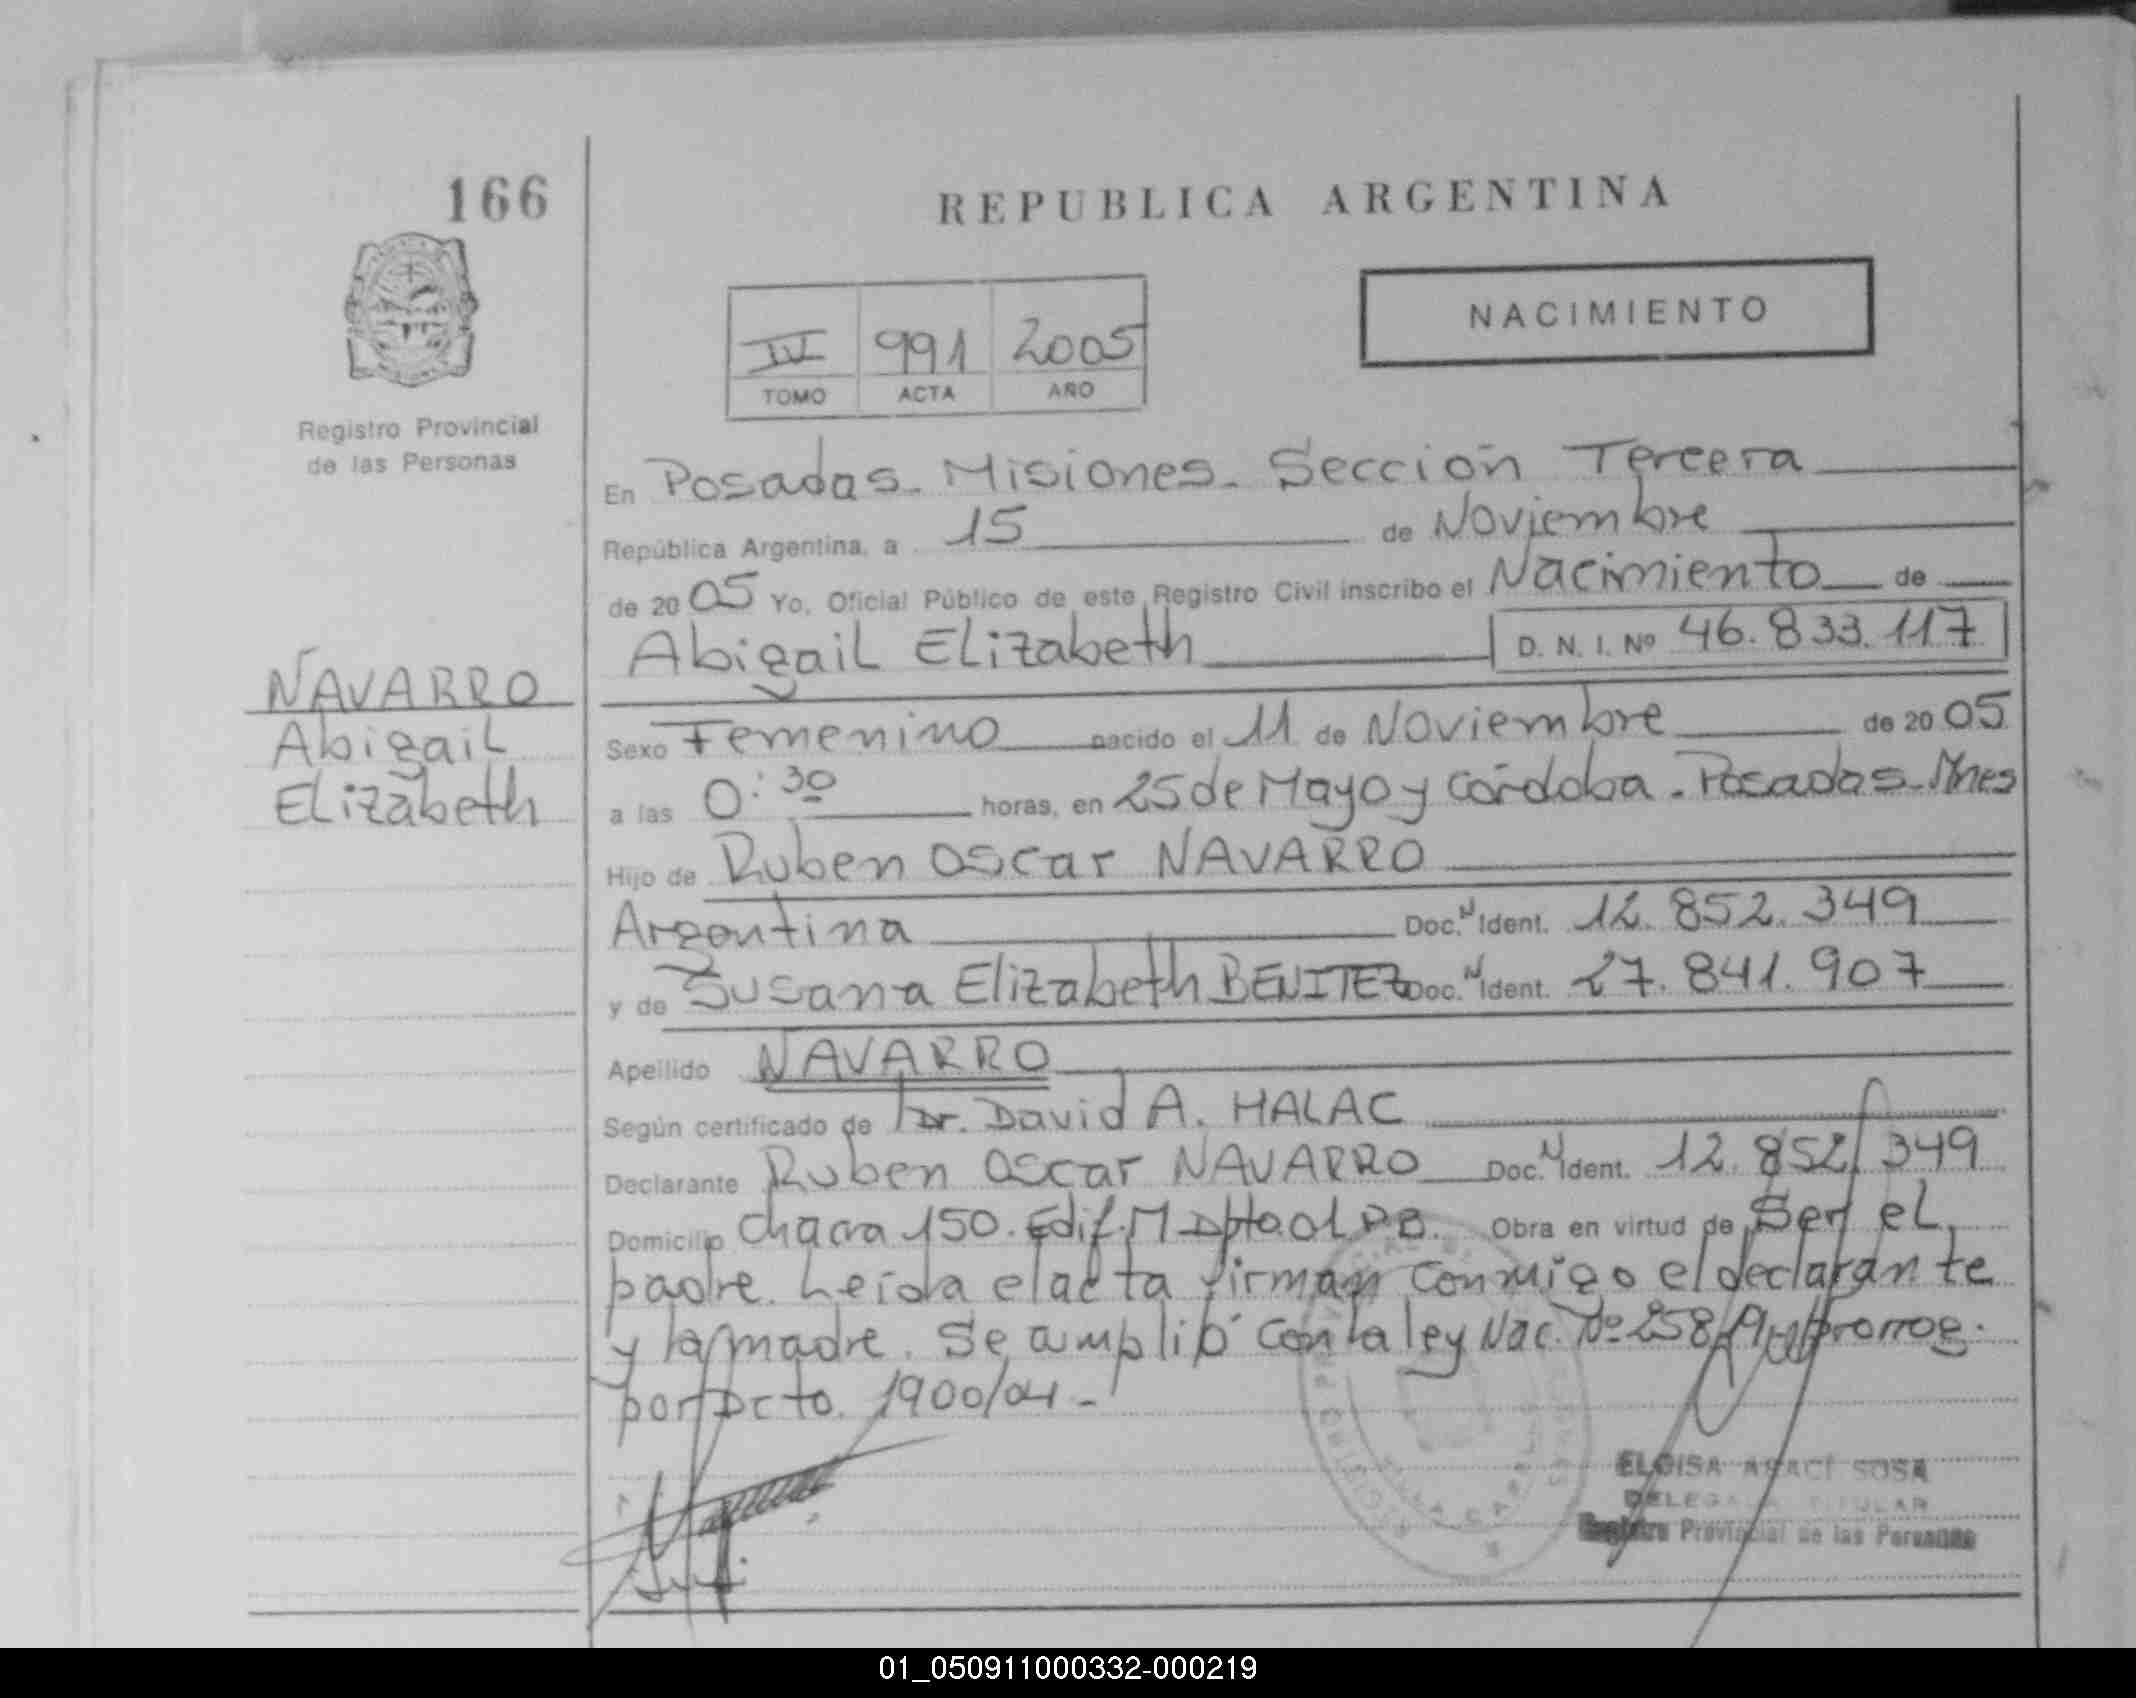 166
REPUBLICA ARGENTINA
NACIMIENTO
IV 991 2005
TOMO ACTA AÑO
Registro Provincial
de las Personas
En Posadas - Misiones - Sección Tercera
República Argentina, a 15 de Noviembre
de 2005 Yo, Oficial Público de este Registro Civil inscribo el Nacimiento de
Abigail Elizabeth D. N. I. Nº 46.833.117
NAVARRO
Abigail
Elizabeth
Sexo Femenino nacido el 11 de Noviembre de 2005
a las 0:30 horas, en 25 de Mayo y Córdoba - Posadas - Mnes
Hijo de Ruben Oscar NAVARRO
Argentina Doc. N Ident. 12.852.349
y de Susana Elizabeth BENITEZ Doc. N Ident. 27.841.907
Apellido NAVARRO
Según certificado de Dr. David A. HALAC
Declarante Ruben Oscar NAVARRO Doc. N Ident. 12.852.349
Domicilio Chacra 150. Edif. M Dpto. 01 PB. Obra en virtud de Ser el
padre. Leída el acta firman conmigo el declarante
y la madre. Se amplió con la ley Nac. Nº 258 prorrog.
por Dcto. 1900/04 -
ELOISA ARACI SOSA
DELEGADA TITULAR
Registro Provincial de las Personas
01_050911000332-000219